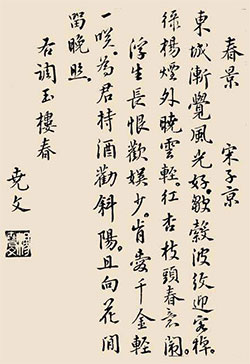 春景 宋子京
東城漸覺風光好。皺縠波紋迎客棹。
綠楊煙外曉雲輕。紅杏枝頭春意鬧。
浮生長恨歡娛少。肯愛千金輕
一咲。為君持酒勸斜陽。且向花間
留晚照。
右調玉樓春
堯文